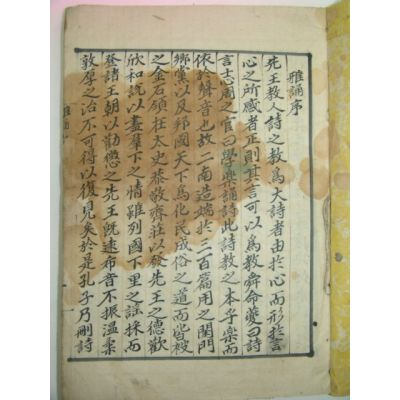 雅誦序
先王教人詩之教為大詩者由於心而形於言
心之所感者正則其言可以為教舜命夔曰詩
言志周之官曰學樂誦詩此詩教之本乎樂而
依於聲音也故二南造端於三百篇用之閨門
鄉黨以及邦國天下為化民成俗之道而皆被
之金石頌在太史恭敬齋莊以發先王之德歡
欣和說以盡羣下之情雖列國下里之謠採而
登諸王朝以勸懲之先王旣遠布音不振溫柔
敦厚之治不可得以復見矣於是孔子乃刪詩